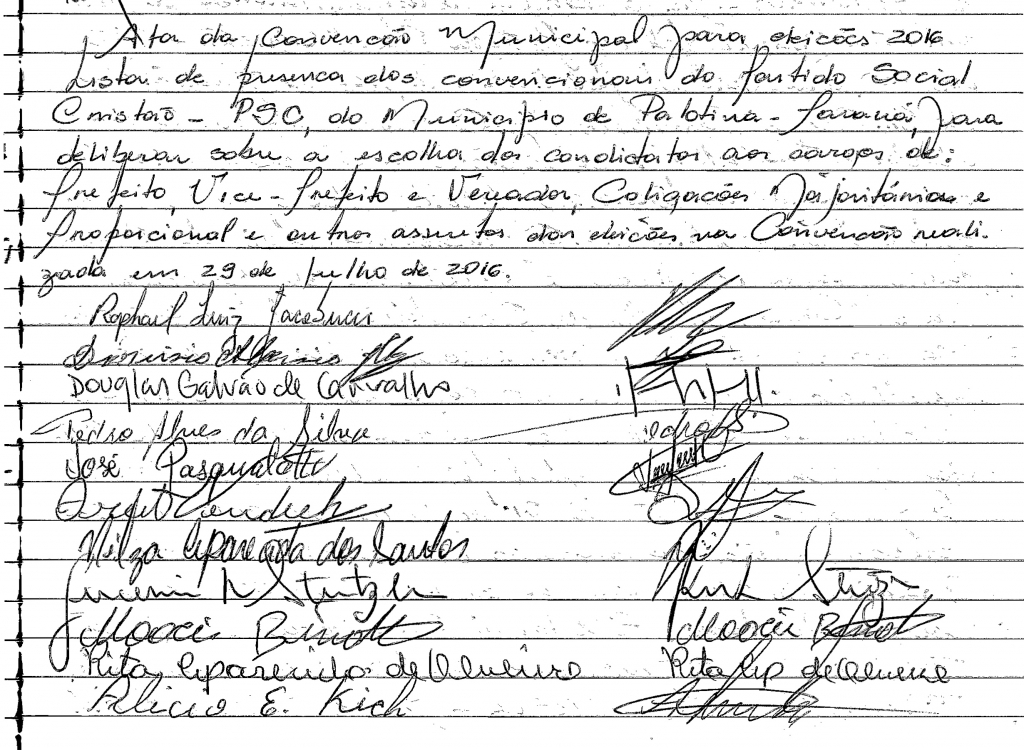 Ata da Convenção Municipal para eleições 2016
Lista de presença dos convencionais do Partido Social
Cristão - PSC, do Município de Palotina - Paraná, para
deliberar sobre a escolha dos candidatos aos cargos de:
Prefeito, Vice-Prefeito e Vereador, Coligações Majoritárias e
Proporcional e outros assuntos das eleições na Convenção reali-
zada em 29 de Julho de 2016.
Raphael Luiz
Douglas Galvão de Carvalho
Pedro Alves da Silva
José Pasqualotti
Nilza Aparecida dos Santos
Moacir
Moacir
Rita Aparecida de Oliveira
Rita Ap de Oliveira
Elicio E. Kich